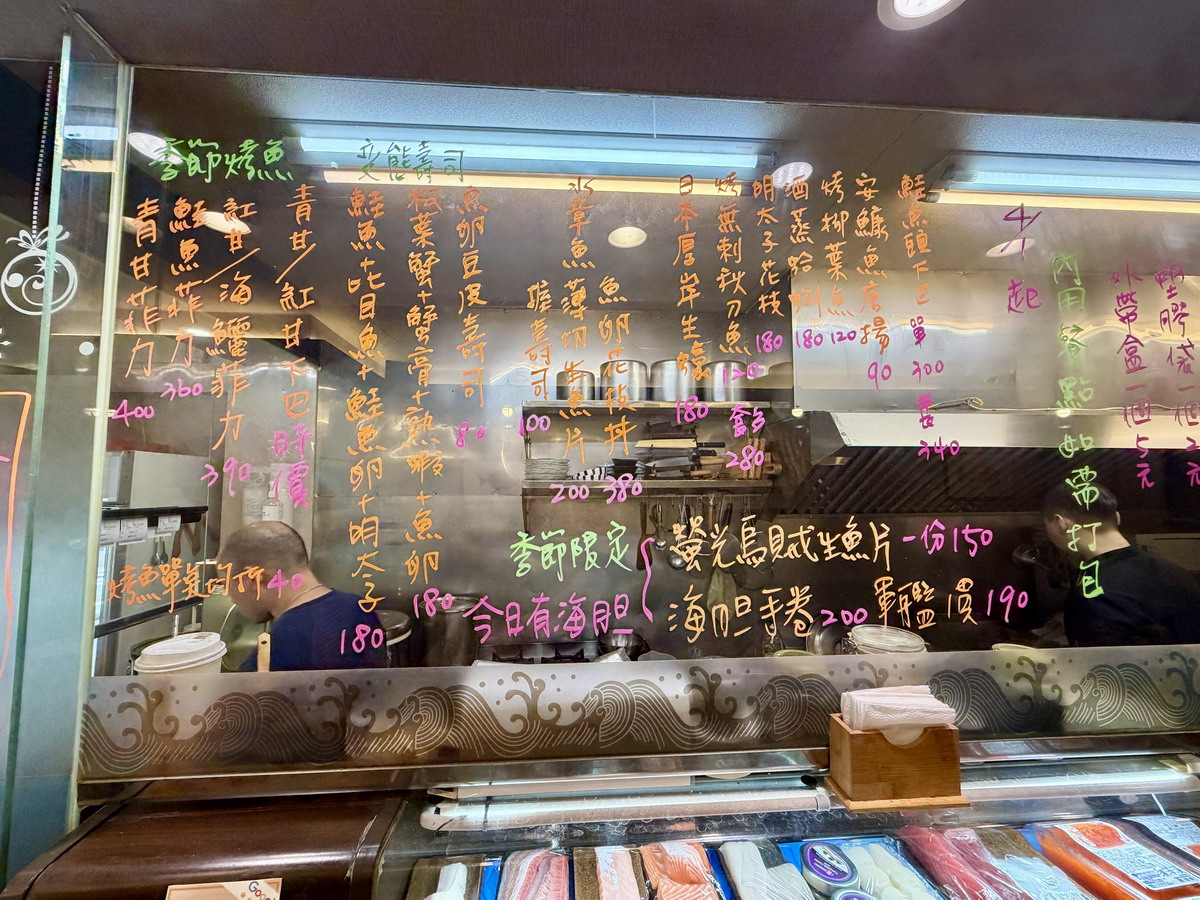 季節烤魚
青甘菲力 400
鮭魚菲力 360
紅甘/海鱺菲力 390
青甘/紅甘下巴 時價
烤魚單點均折40
變態壽司
鮭魚+比目魚+鮭魚卵+明太子 180
松葉蟹+蟹膏+熟蝦+魚卵 180
魚卵豆皮壽司 80
捲壽司 100
水章魚薄切生魚片 200
魚卵花枝丼 380
日本厚岸生蠔 180
烤無刺秋刀魚 120
套3 280
明太子花枝 180
酒蒸蛤蜊 180
烤柳葉魚 120
安鱇魚唐揚 90
鮭魚頭下巴 單 300
套 340
季節限定
螢光烏賊生魚片 一份150
今日有海胆
海胆手卷 200
軍艦 一貫190
4/1起
內用餐點如需打包
外帶盒一個5元
塑膠袋一個2元